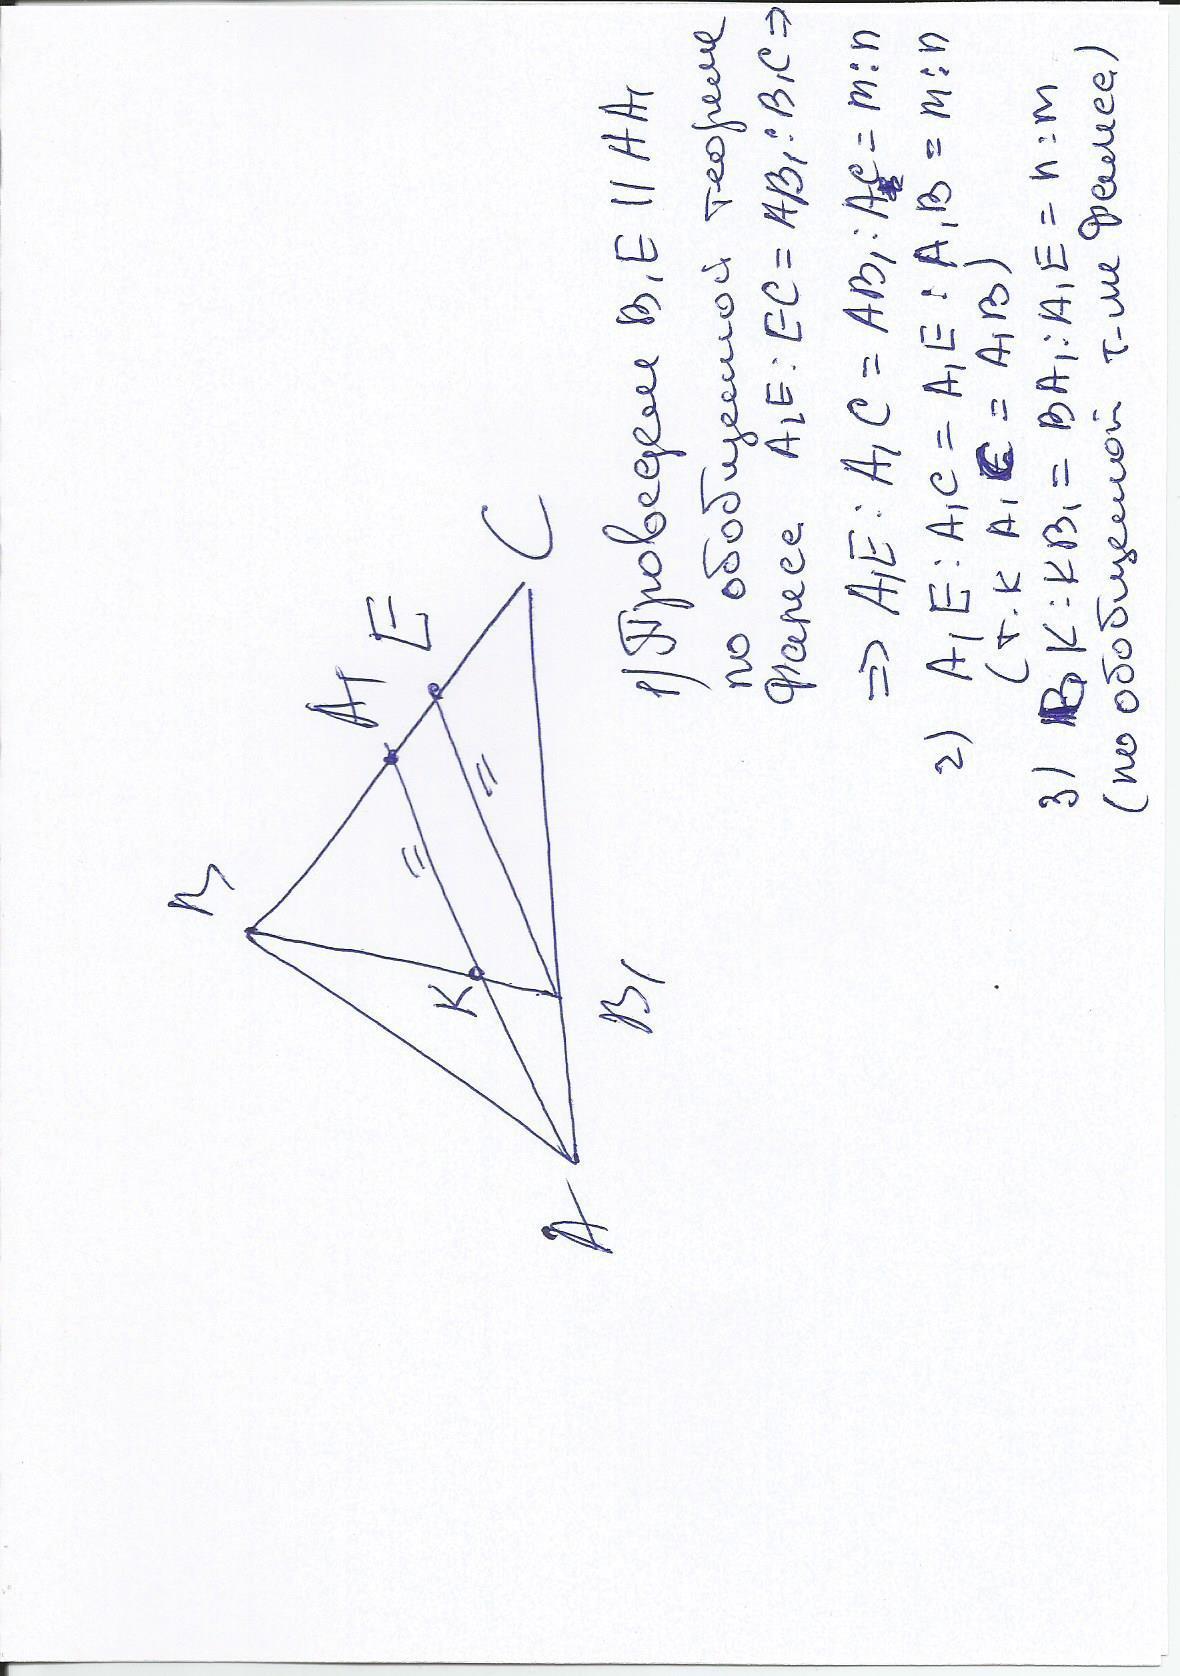 B
A₁
E
K
C
A
B₁
1) Проведем B₁E || AA₁
по обобщенной теореме
фалеса A₁E : EC = AB₁ : B₁C ⇒
⇒ A₁E : A₁C = AB₁ : AC = m : n
2) A₁E : A₁C = A₁E : A₁B = m : n
(т.к A₁C = A₁B)
3) BK : KB₁ = BA₁ : A₁E = n : m
(по обобщенной т-ме фалеса)